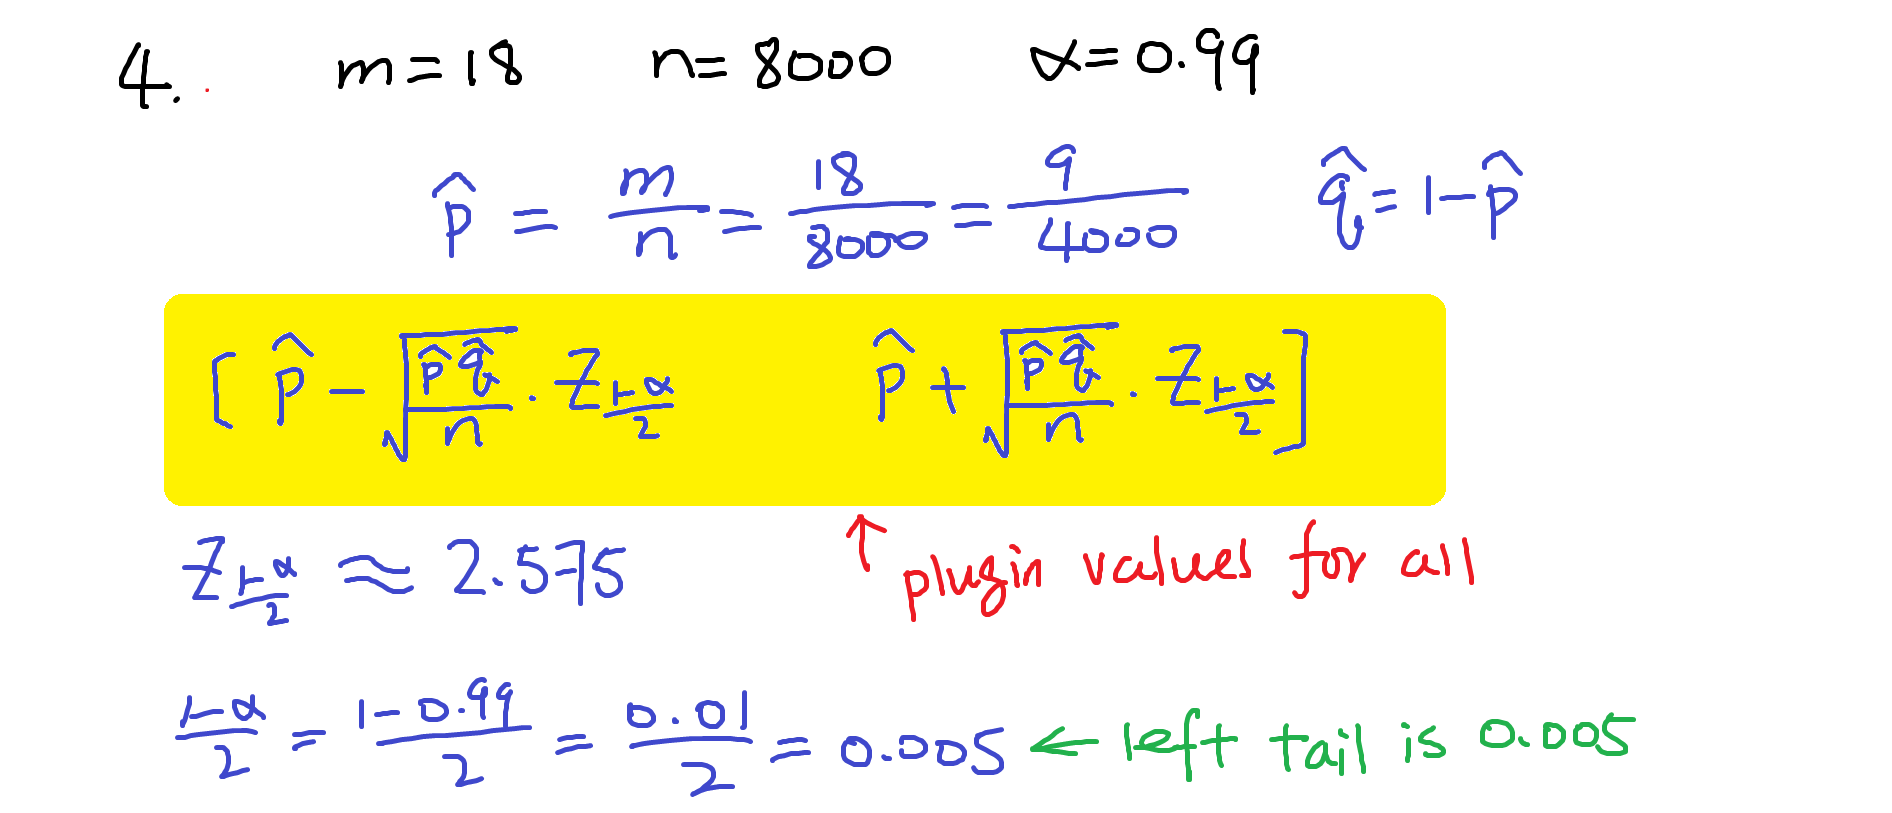 4. m=18 n=8000 α=0.99
p̂ = m/n = 18/8000 = 9/4000 q̂ = 1-p̂
[ p̂ - √(p̂q̂/n) · Z_(1-α)/2 p̂ + √(p̂q̂/n) · Z_(1-α)/2 ]
Z_(1-α)/2 ≈ 2.575 ↑ plugin values for all
(1-α)/2 = (1-0.99)/2 = 0.01/2 = 0.005 ← left tail is 0.005